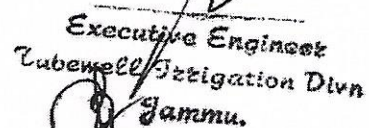 Executive Engineer
Tubewell Irrigation Divn
Jammu.